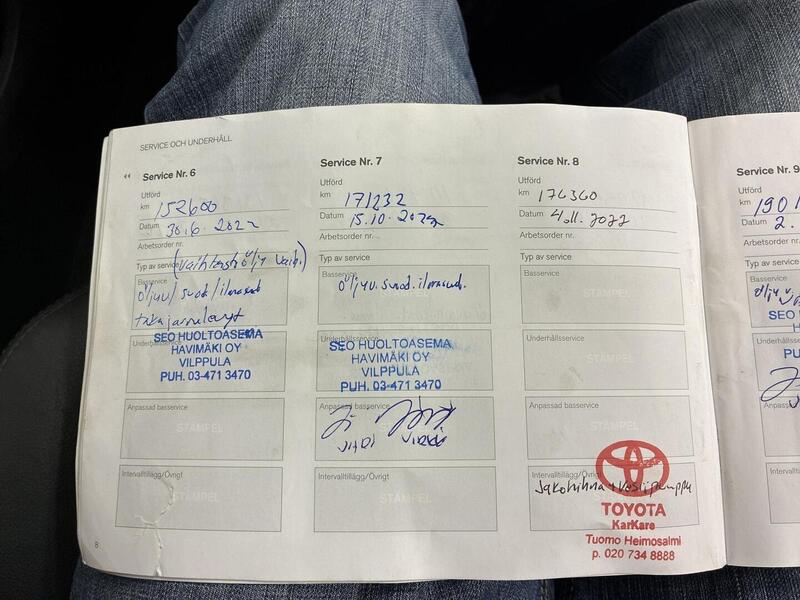 SERVICE OCH UNDERHÅLL
Service Nr. 6
Utförd
km 152600
Datum 30.6-2022
Arbetsorder nr.
Typ av service (Vaihteistoöljy vaih.)
Basservice
öljyv/suod/ilmasuod
takajarrulevyt
Underhållsservice
SEO HUOLTOASEMA
HAVIMÄKI OY
VILPPULA
PUH. 03-471 3470
Anpassad basservice
STÄMPEL
Intervalltillägg/Övrigt
STÄMPEL
8
Service Nr. 7
Utförd
km 171232
Datum 15.10-2022
Arbetsorder nr.
Typ av service
Basservice
öljyv. suod. ilmasuod.
SEO HUOLTOASEMA
HAVIMÄKI OY
VILPPULA
PUH. 03-471 3470
Anpassad basservice
STÄMPEL
Intervalltillägg/Övrigt
STÄMPEL
Service Nr. 8
Utförd
km 176360
Datum 4.11.2022
Arbetsorder nr.
Typ av service
Basservice
STÄMPEL
Underhållsservice
STÄMPEL
Anpassad basservice
STÄMPEL
Intervalltillägg/Övrigt
Jakohihna + vesipumppu
TOYOTA
KarKare
Tuomo Heimosalmi
p. 020 734 8888
Service Nr. 9
Utförd
km 1901
Datum 2.
Arbetsorder
Typ av serv
Basservice
SEO H
H
PU
Anpass
Interval